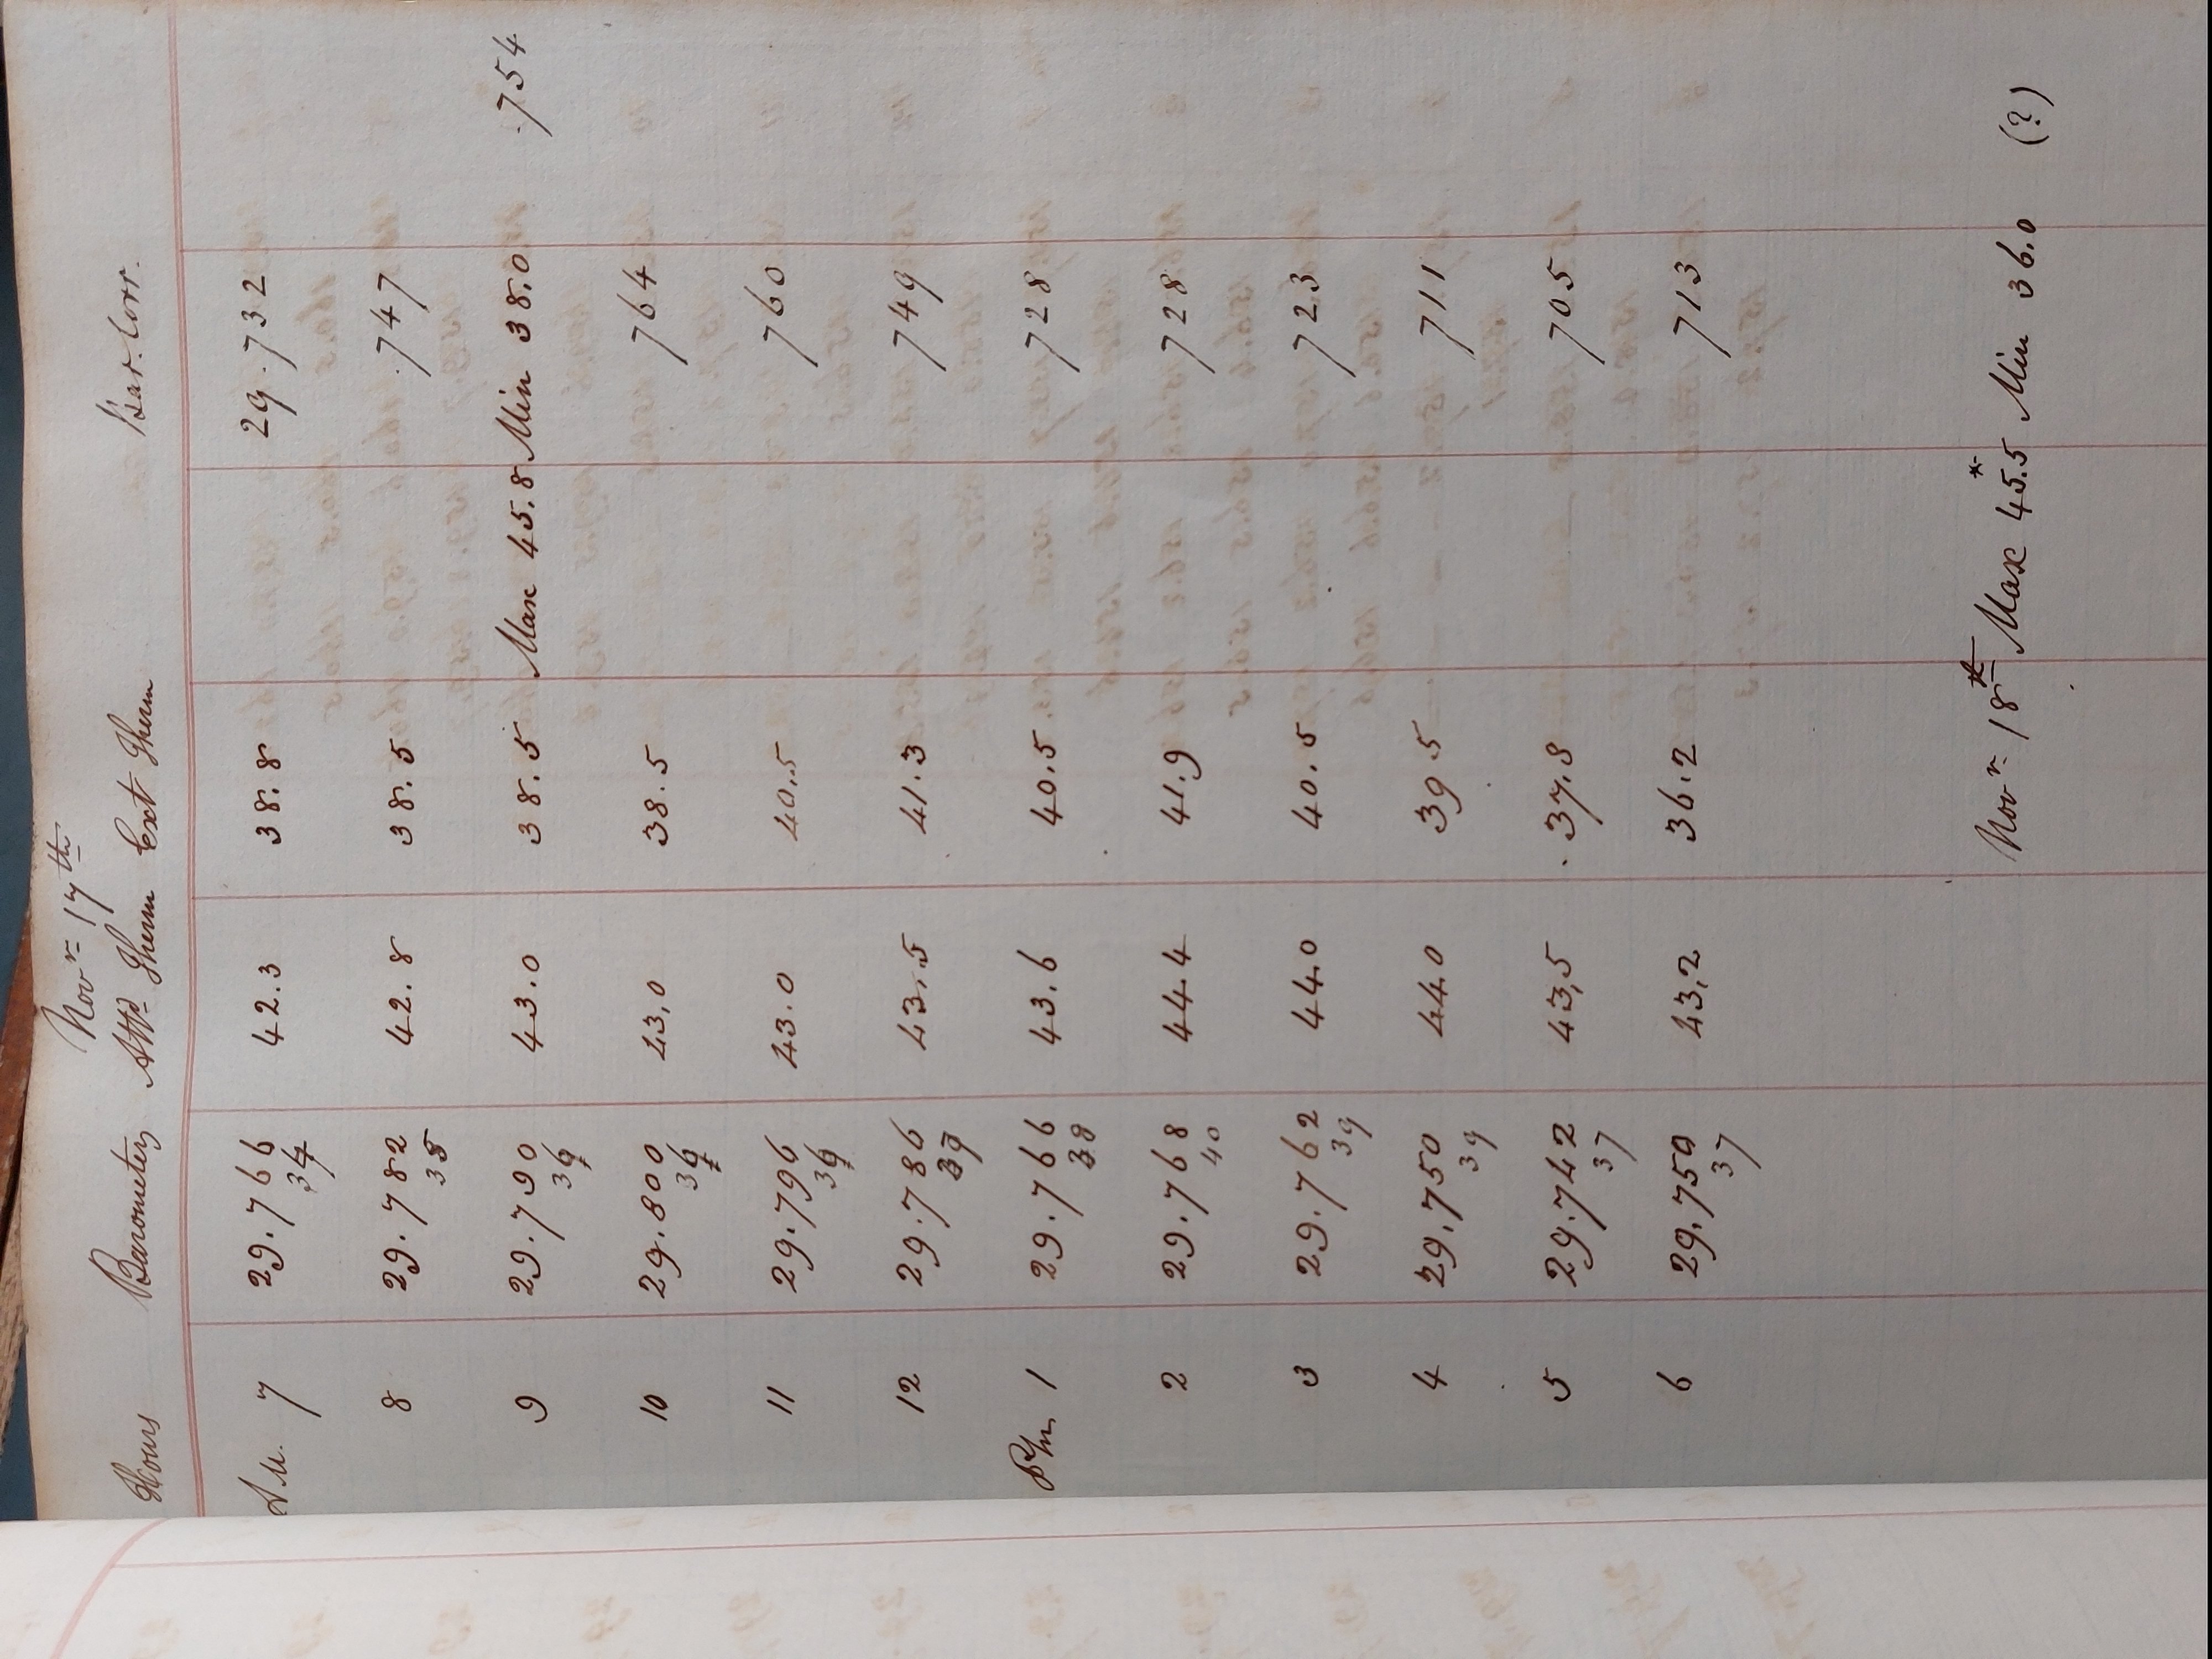 Novr 17th
Hours Barometers Attd Therm Ext Therm Bar. Corr.
A.M. 7 29.766 42.3 38.8 29.732
34
8 29.782 42.8 38.5 .747
35
9 29.790 43.0 38.5 Max 45.8 Min 38.0 .754
36
10 29.800 43,0 38.5 764
36
11 29.796 43.0 40.5 760
36
12 29.786 43.5 41.3 749
37
Pm 1 29.766 43.6 40.5 728
38
2 29.768 44.4 41.9 728
40
3 29.762 44.0 40.5 723
39
4 29,750 44.0 39.5 711
39
5 29.742 43,5 37.8 705
37
6 29.750 43,2 36.2 713
37
Novr 18th Max 45.5* Min 36.0 (?)